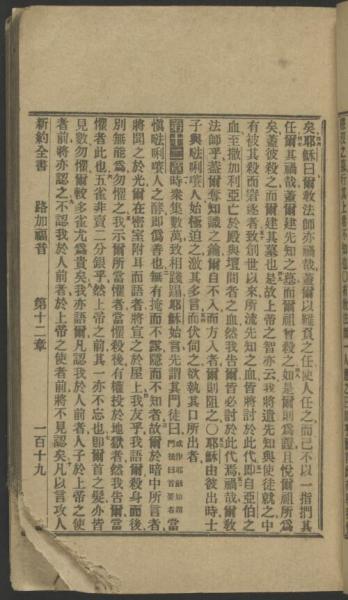 矣耶穌曰爾教法師亦禍哉蓋爾以難負之任使人任之而己不以一指捫其
任爾其禍哉蓋爾建先知之墓而爾祖曾殺之如是爾則爲證且悅爾祖所爲
矣蓋彼殺之而爾建其墓也是故上帝之智亦云我將遣先知與使徒就之中
有被其殺而窘逐者致創世以來所流先知之血皆將討於此代即自亞伯之
血至撒加利亞亡於殿與壇間者之血然我告爾皆必討於此代焉禍哉爾教
法師乎蓋爾奪知識之鑰爾自不入而方入者爾則阻之〇耶穌由彼出時士
子與𠵽唎㘔人始極迫之激其多言而伏伺之欲執其口所出者
第十二章時衆集數萬致相踐蹋耶穌始言先謂其門徒曰 當
愼𠵽唎㘔人之酵即僞善也無有掩而不露隱而不知者故爾於暗中所言者
將聞之於光爾在密室附耳而語者將宣之於屋上我友乎我語爾殺身而後
別無能爲勿懼之我示爾所當懼者當懼殺後有權投於地獄者然我告爾當
懼者此也五雀非賣二分銀乎然上帝之前其一亦不忘也即爾首之髮亦皆
見數勿懼爾較多雀尤爲貴矣我亦語爾凡認我於人前者人子於上帝之使
者前將亦認之不認我於人前者於上帝之使者前將不見認矣凡以言攻人
新約全書 路加福音 第十二章 一百十九